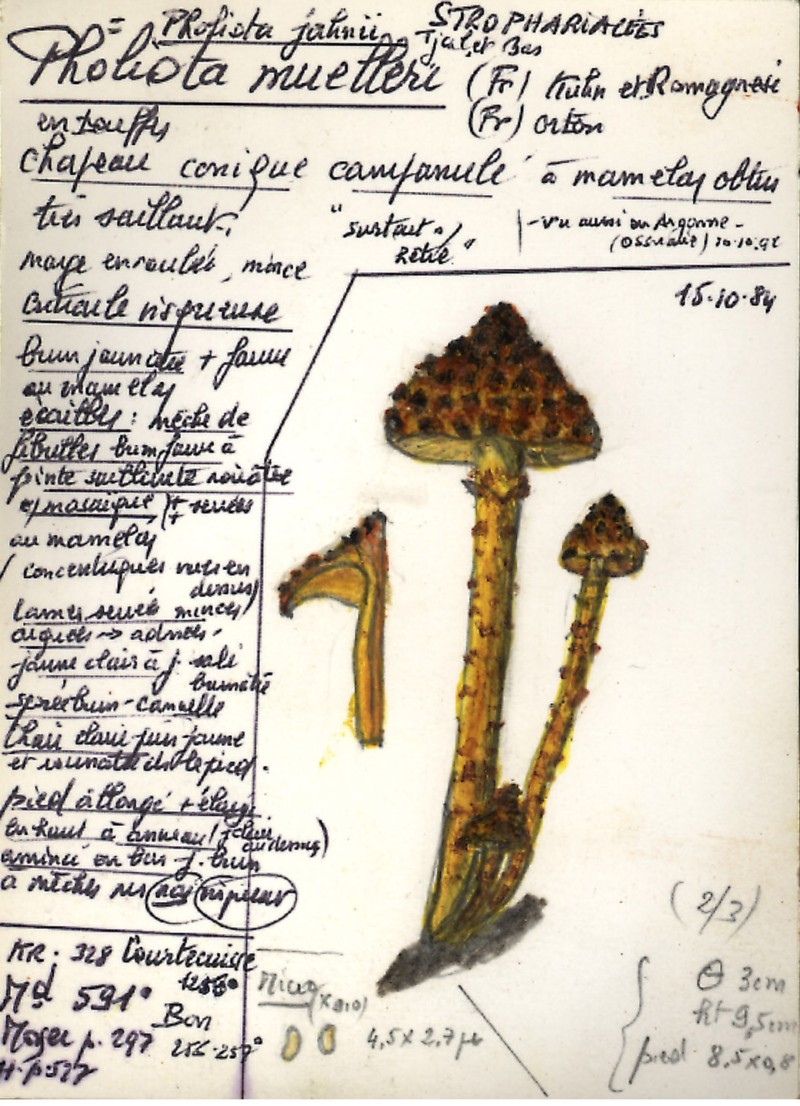 = Pholiota jahnii STROPHARIACÉES
Tjal. et Bas
Pholiota muelleri (Fr) Kuhn et Romagnesi
(Fr) Orton
en touffes
chapeau conique campanulé à mamelon obtus
très saillant.
"surtout
- vu aussi en Argonne -
10.10.92
marge enroulée, mince
cuticule visqueuse
15.10.84
brun jaunâtre + fauve
au mamelon
écailles : mèche de
fibrilles brun fauve à
pointe saillante noirâtre
en mosaïque, + serrées
au mamelon
(concentriques vues en
dessus)
lames serrées minces
aiguës → adnées.
jaune clair à j. sali
brunâtre
sporée brun-cannelle
Chair
jaune
et
le pied.
pied allongé + élargi
en haut à anneau (+ clair
au dessus)
aminci en bas j. brun
à mèches
non
KR : 328 Courtecuisse
1256°
Md 591°
Bon
Moser p. 297
256-257°
H. p. 527
Micro
4,5 x 2,7 µ
(2/3)
Θ 3cm
ht 9,5cm
pied 8,5 x 0,8